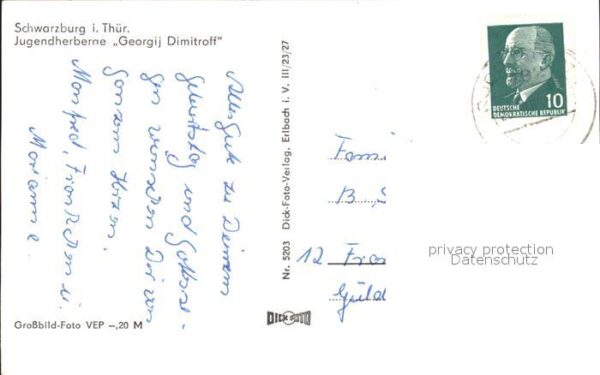 Schwarzburg i. Thür.
Jugendherberge „Georgij Dimitroff"
Alles Gute zu Deinem
Geburtstag und Gottesse-
gen wünschen Dir von
Ganzem Herzen.
Manfred, Frankchen u.
Marianne.
Großbild-Foto VEP –,20 M
Nr. 5203 Dick-Foto-Verlag, Erlbach i. V. III/23/27
DICK FOTO
DEUTSCHE
DEMOKRATISCHE REPUBLIK
10
Fami
B
12 Fran
Güld
privacy protection
Datenschutz